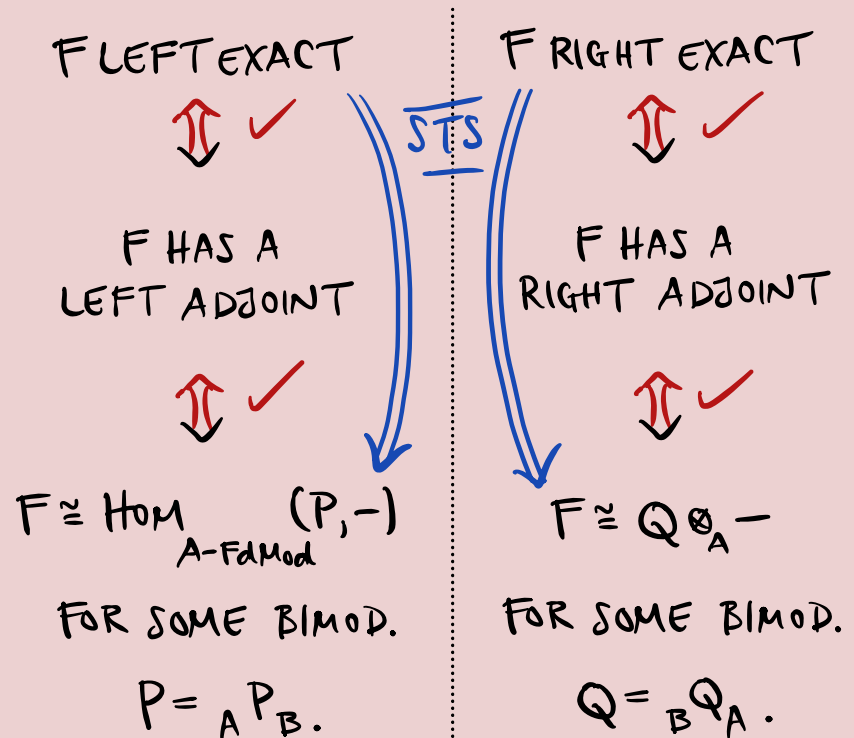 F LEFT EXACT
⇕ ✓
F HAS A
LEFT ADJOINT
⇕ ✓
F ≅ HOM_{A-FdMod} (P, -)
FOR SOME BIMOD.
P = _A P_B.
STS
F RIGHT EXACT
⇕ ✓
F HAS A
RIGHT ADJOINT
⇕ ✓
F ≅ Q ⊗_A -
FOR SOME BIMOD.
Q = _B Q_A.